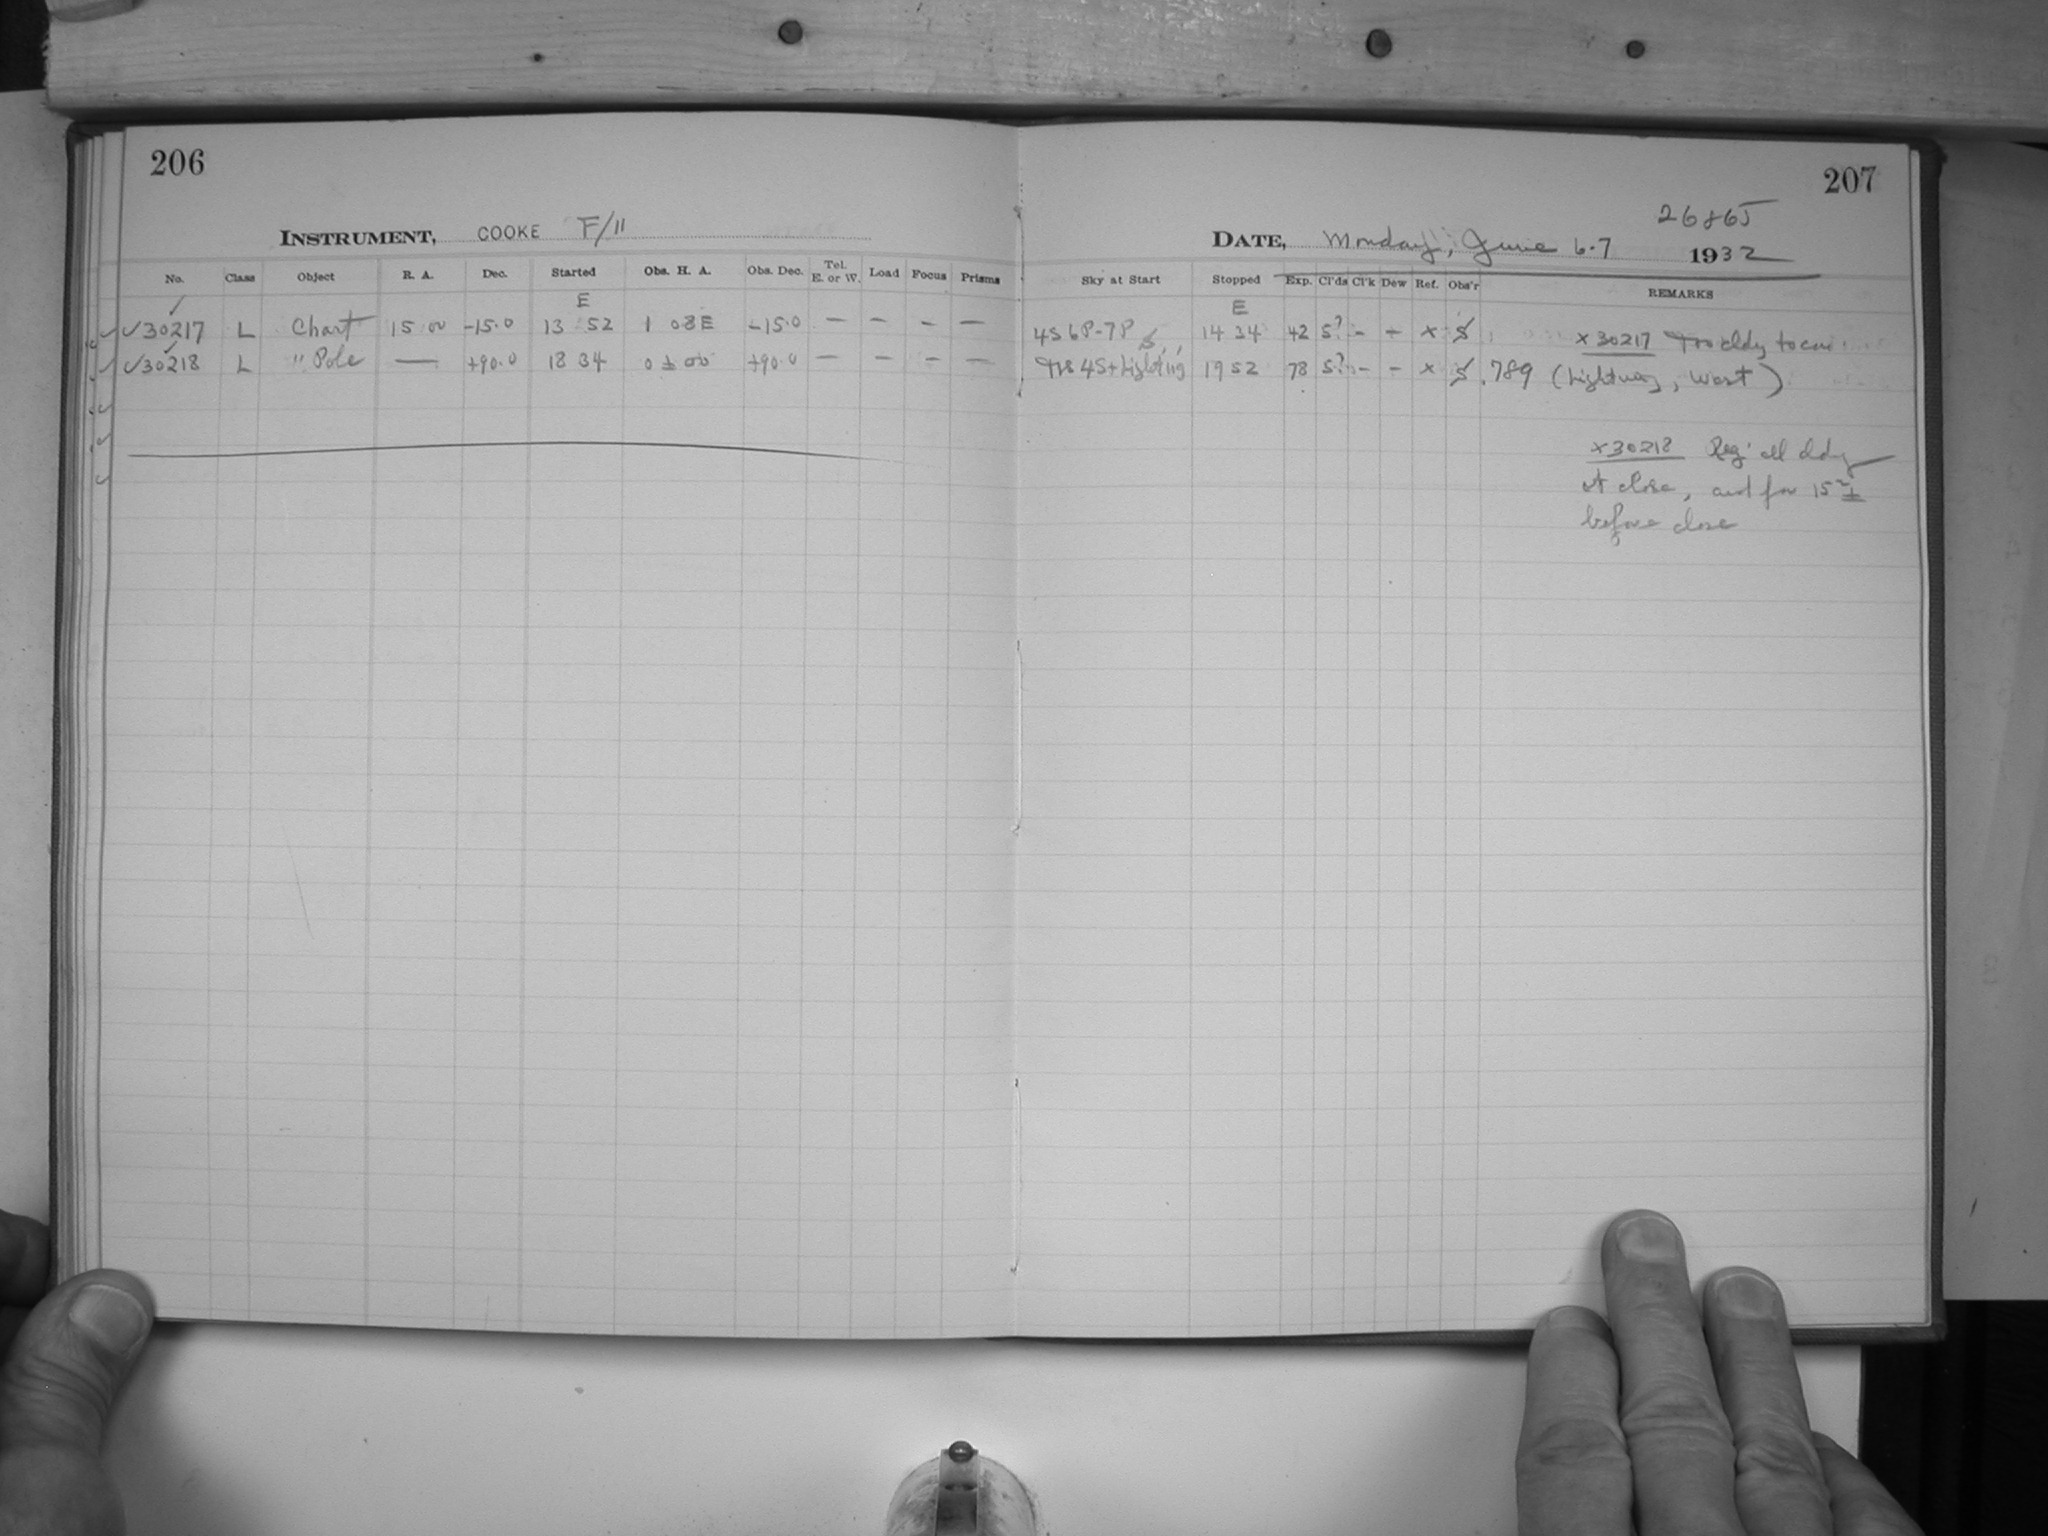 206
INSTRUMENT, COOKE F/11
No. Class Object R. A. Dec. Started Obs. H. A. Obs. Dec. Tel. E. or W. Load Focus Prisms
E
30217 L Chart 15 00 -15.0 13 52 1 08E -15.0 - - - -
30218 L " Pole — +90.0 18 34 0 ± 00 +90.0 - - - -
207
26865
DATE, Monday, June 6-7 1932
Sky at Start Stopped Exp. Cl'ds Cl'k Dew Ref. Obs'r REMARKS
E
4S 6P-7P 14 34 42 S? - - x S x 30217 Too cldy to
4S + Lightning 19 52 78 S? - - x S .789 (Lightning, West)
x 30218 cldy
At close, and for 15m ±
before close